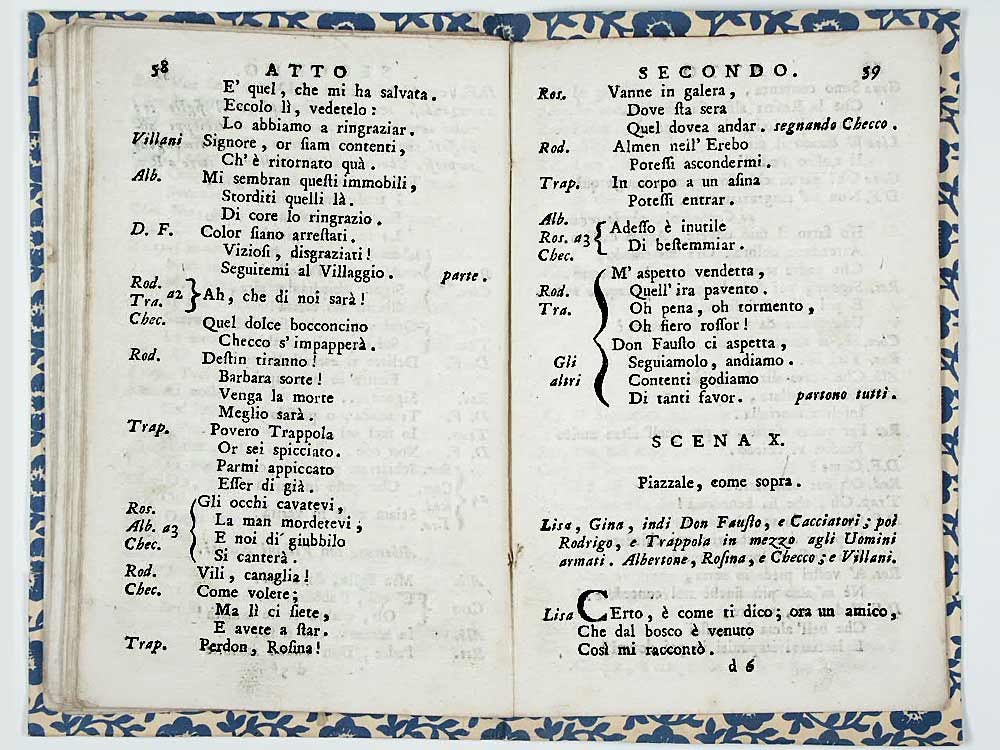 58 ATTO
E' quel, che mi ha salvata.
Eccolo lì, vedetelo:
Lo abbiamo a ringraziar.
Villani Signore, or siam contenti,
Ch' è ritornato quà.
Alb. Mi sembran questi immobili,
Storditi quelli là.
Di core lo ringrazio.
D. F. Color siano arrestati.
Viziosi, disgraziati!
Seguitemi al Villaggio. parte.
Rod.
Tra. a2 } Ah, che di noi sarà!
Chec. Quel dolce bocconcino
Checco s' impapperà.
Rod. Destin tiranno!
Barbara sorte!
Venga la morte
Meglio sarà.
Trap. Povero Trappola
Or sei spicciato.
Parmi appiccato
Esser di già.
Ros. Alb. a3 Chec. { Gli occhi cavatevi,
La man mordetevi;
E noi di giubbilo
Si canterà.
Rod. Vili, canaglia!
Chec. Come volete;
Ma lì ci siete,
E avete a star.
Trap. Perdon, Rosina!
SECONDO. 59
Ros. Vanne in galera,
Dove sta sera
Quel dovea andar. segnando Checco.
Rod. Almen nell' Erebo
Potessi ascondermi.
Trap. In corpo a un asina
Potessi entrar.
Alb. Ros. a3 Chec. { Adesso è inutile
Di bestemmiar.
Rod. Tra. { M' aspetto vendetta,
Quell' ira pavento.
Oh pena, oh tormento,
Oh fiero rossor!
Gli altri Don Fausto ci aspetta,
Seguiamolo, andiamo.
Contenti godiamo
Di tanti favor. partono tutti.
SCENA X.
Piazzale, come sopra.
Lisa, Gina, indi Don Fausto, e Cacciatori; poi
Rodrigo, e Trappola in mezzo agli Uomini
armati. Albertone, Rosina, e Checco; e Villani.
Lisa CErto, è come ti dico; ora un amico,
Che dal bosco è venuto
Così mi raccontò.
d 6